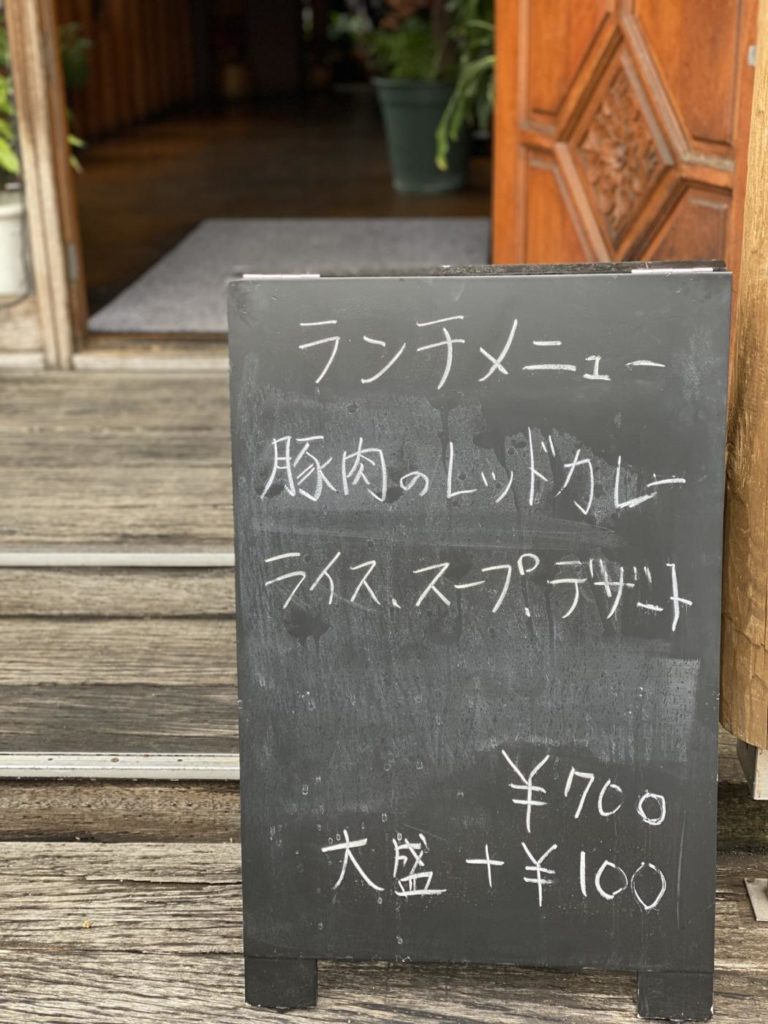 ランチメニュー
豚肉のレッドカレー
ライス、スープ、デザート
¥700
大盛+¥100